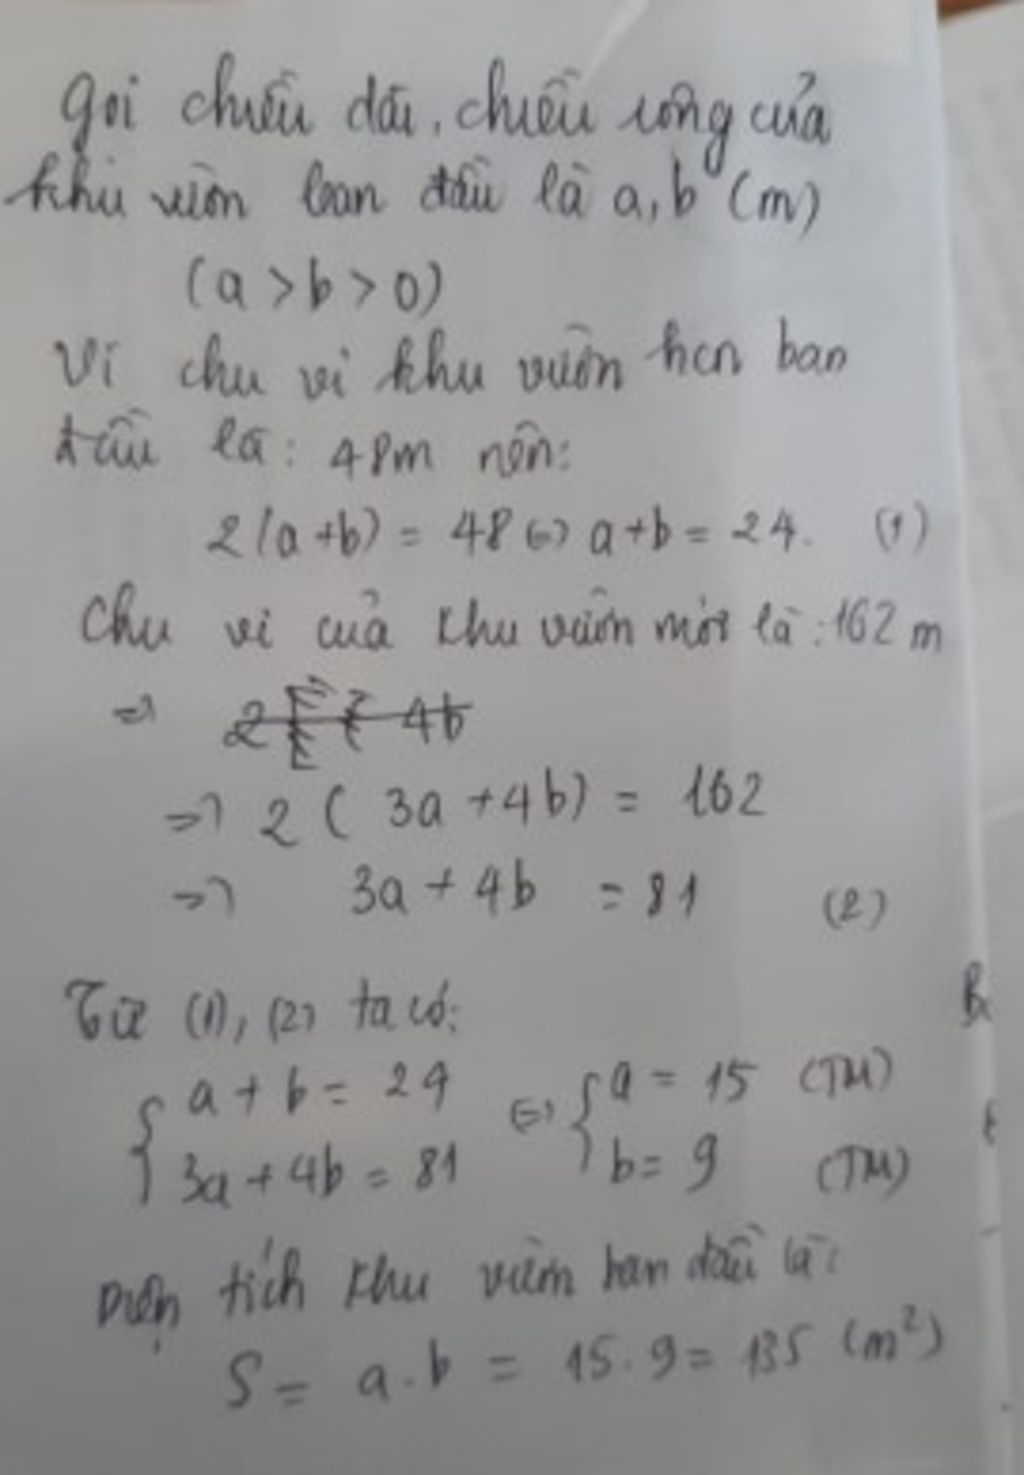 Gọi chiều dài, chiều rộng của
khu vườn ban đầu là a, b (m)
(a > b > 0)
Vì chu vi khu vườn hcn ban
đầu là: 48m nên:
2(a+b) = 48 <=> a+b = 24. (1)
Chu vi của khu vườn mới là: 162 m
=>
=> 2 ( 3a + 4b) = 162
=> 3a + 4b = 81 (2)
Từ (1), (2) ta có:
{ a + b = 24 <=> { a = 15 (TM)
3a + 4b = 81 b = 9 (TM)
Diện tích khu vườn ban đầu là:
S = a . b = 15 . 9 = 135 (m²)